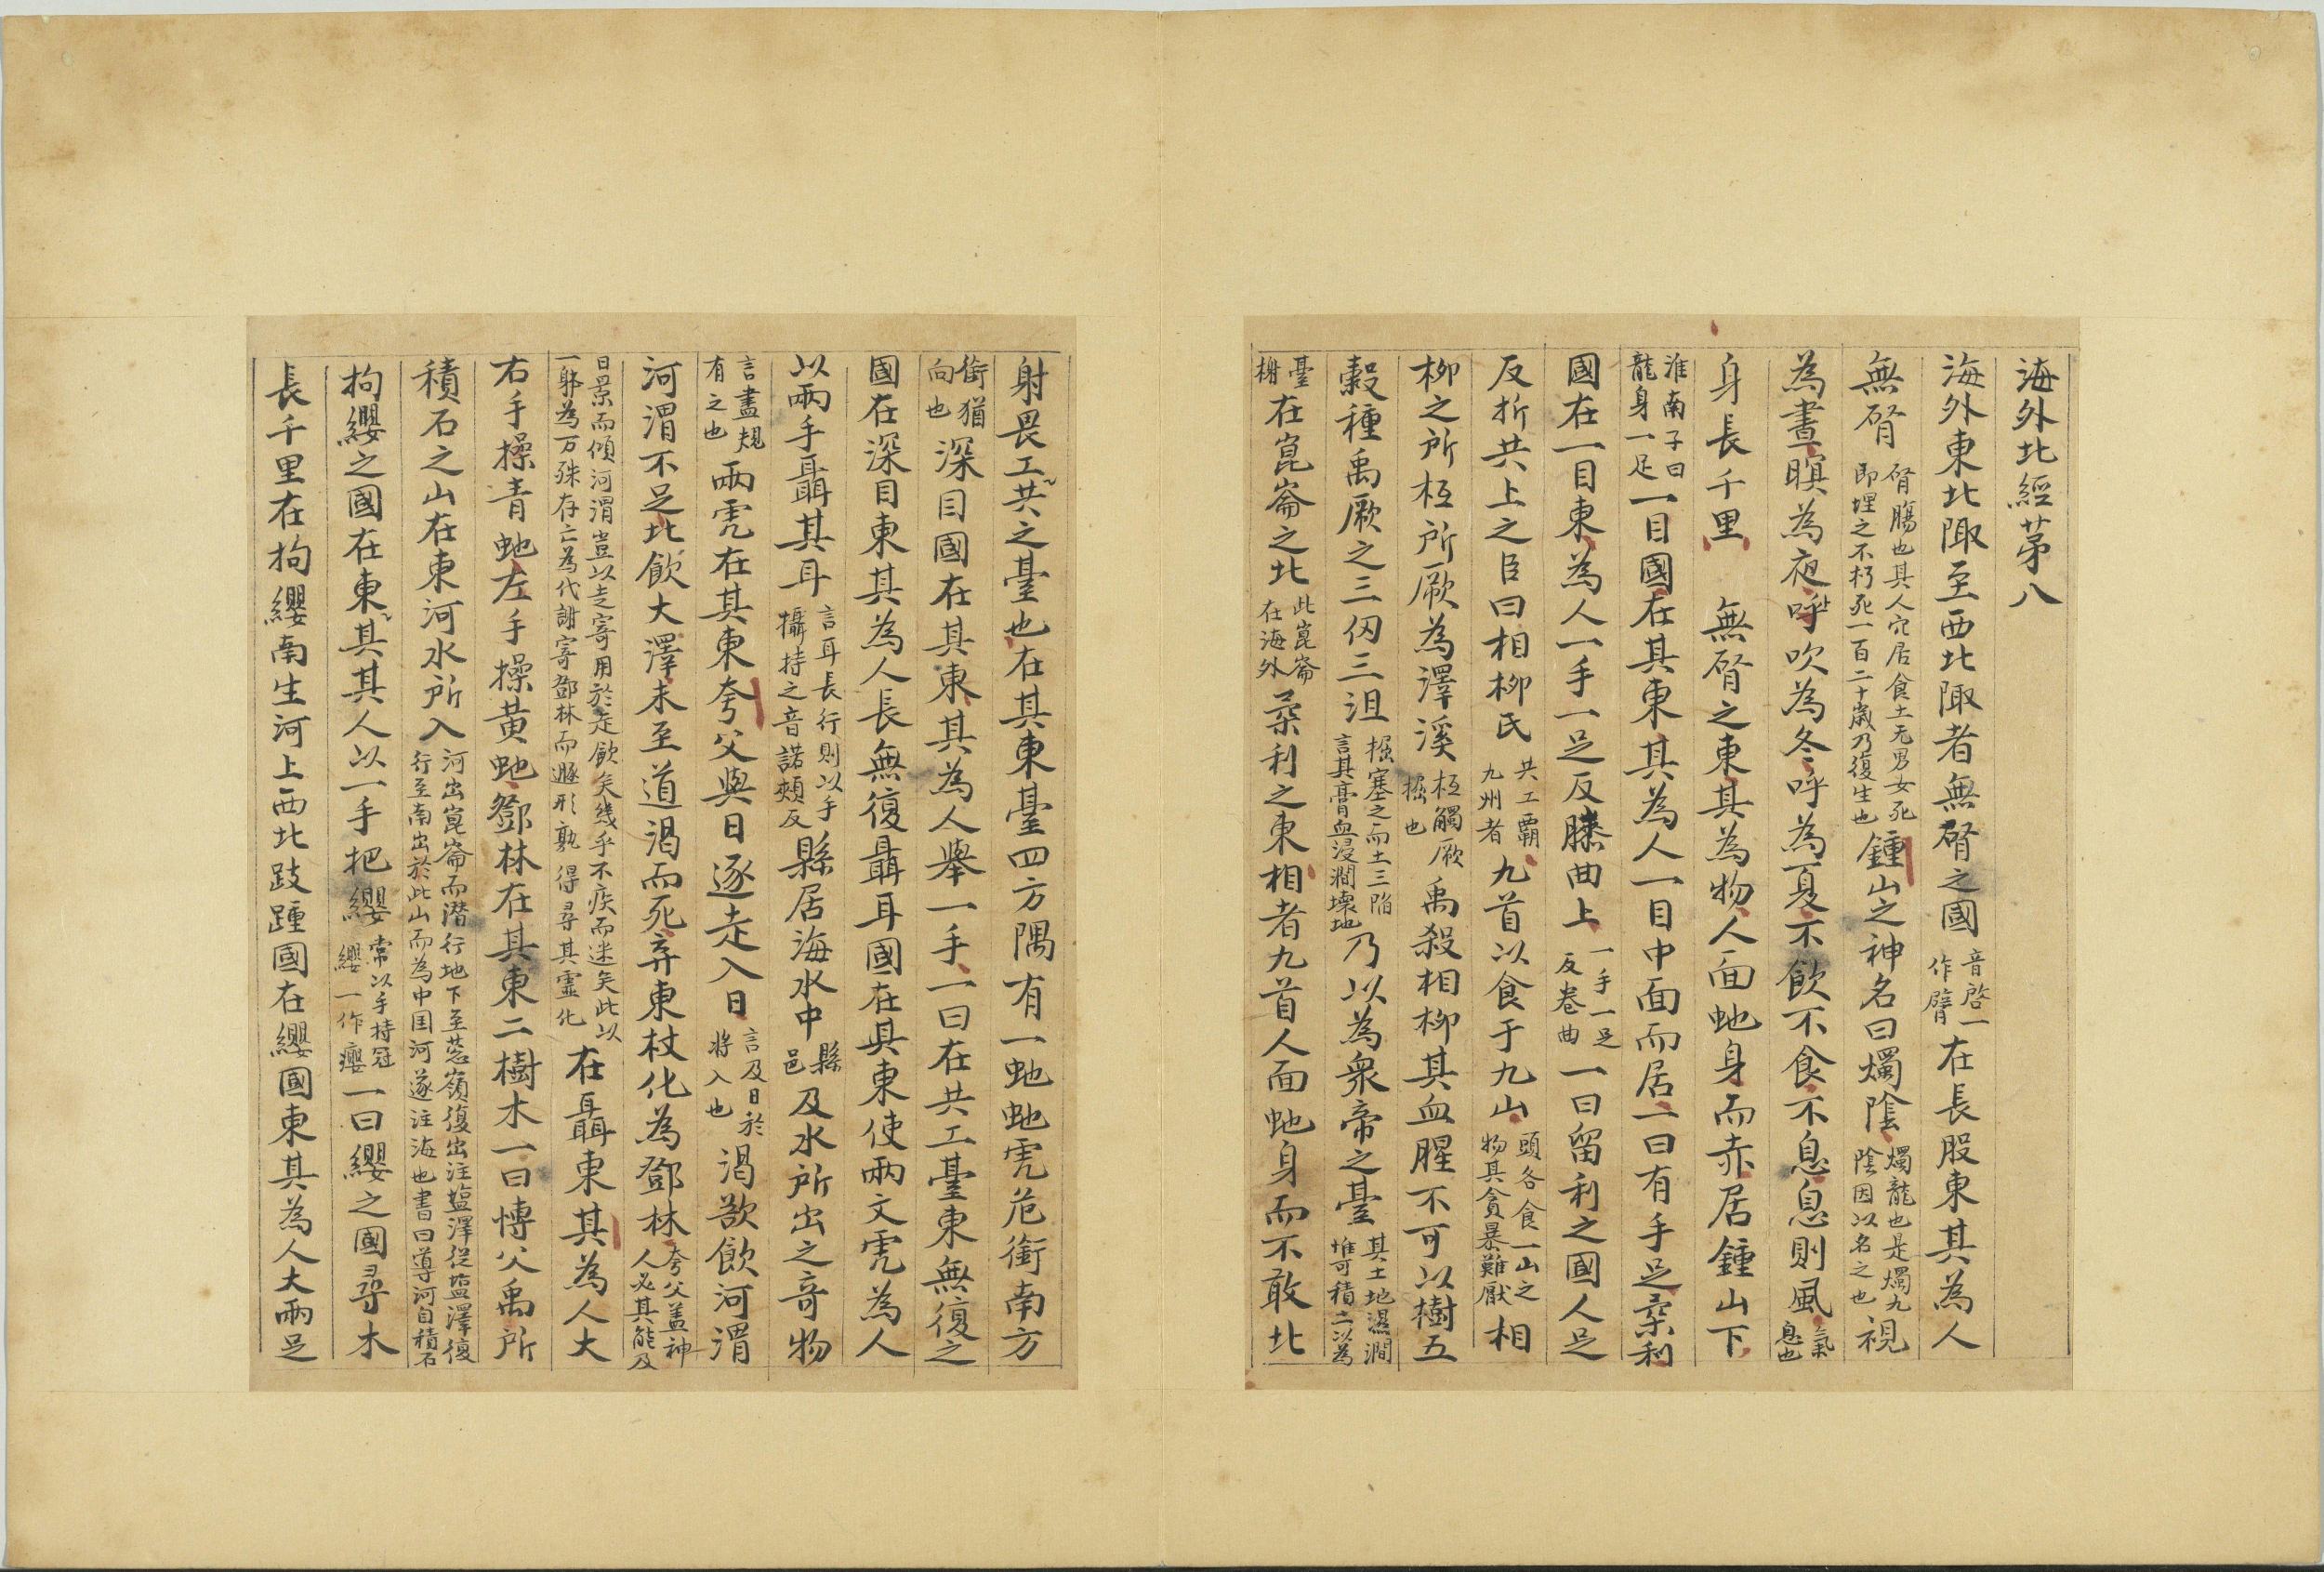 海外北經苐八
海外東北陬至西北陬者無䏿之國音啓一作䏿在長股東其為人
無䏿䏿腸也其人穴居食土无男女死即埋之不朽死一百二十歲乃復生也鍾山之神名曰燭陰燭龍也是燭九陰因以名之也視
為晝暝為夜呼吹為冬呼為夏不飲不食不息息則風氣息也
身長千里 無䏿之東其為物人面虵身而赤居鍾山下
淮南子曰龍身一足一目國在其東其為人一目中面而居一曰有手足柔利
國在一目東為人一手一足反膝曲上一手一足反卷曲一曰留利之國人足
反折共上之臣曰相柳氏共工霸九州者九首以食于九山頭各食一山之物其貪暴難厭相
柳之所柢所厥為澤溪柢觸厥掘也禹殺相柳其血腥不可以樹五
穀種禹厥之三仞三沮掘塞之而土三陷言其膏血浸潤壞地乃以為衆帝之臺其土地濕潤唯可積土以為
臺榭在崑崙之北此崑崙在海外柔利之東相者九首人面虵身而不敢北
射畏工共之臺也在其東臺四方隅有一虵虵虎㐌衝南方
衝猶向也深目國在其東其為人舉一手一曰在共工臺東無復之
國在深目東其為人長無復聶耳國在其東使兩文虎為人
以兩手聶其耳言耳長行則以手攝持之音諾頰反縣居海水中縣邑及水所出之竒物
言盡規有之也兩虎在其東夸父與日逐走入日言及日於將入也渴欲飲河渭
河渭不足北飲大澤未至道渴而死弃東杖化為鄧林夸父盖神人必其能及
日景而傾河渭豈以走寄用於走飲矣幾乎不疾而迷矣此以一躰為万殊存亡為代謝寄鄧林而遯形孰得尋其霊化在聶東其為人大
右手操青虵左手操黃虵鄧林在其東二樹木一曰博父禹所
積石之山在東河水所入河出崑崙而潜行地下至葱嶺復出注塩澤從塩澤復行至南出於此山而為中囯河遂注海也書曰導河自積石
拘纓之國在東其其人以一手把纓常以手持冠纓一作癭一曰纓之國尋木
長千里在拘纓南生河上西北跂踵國在纓國東其為人大兩足